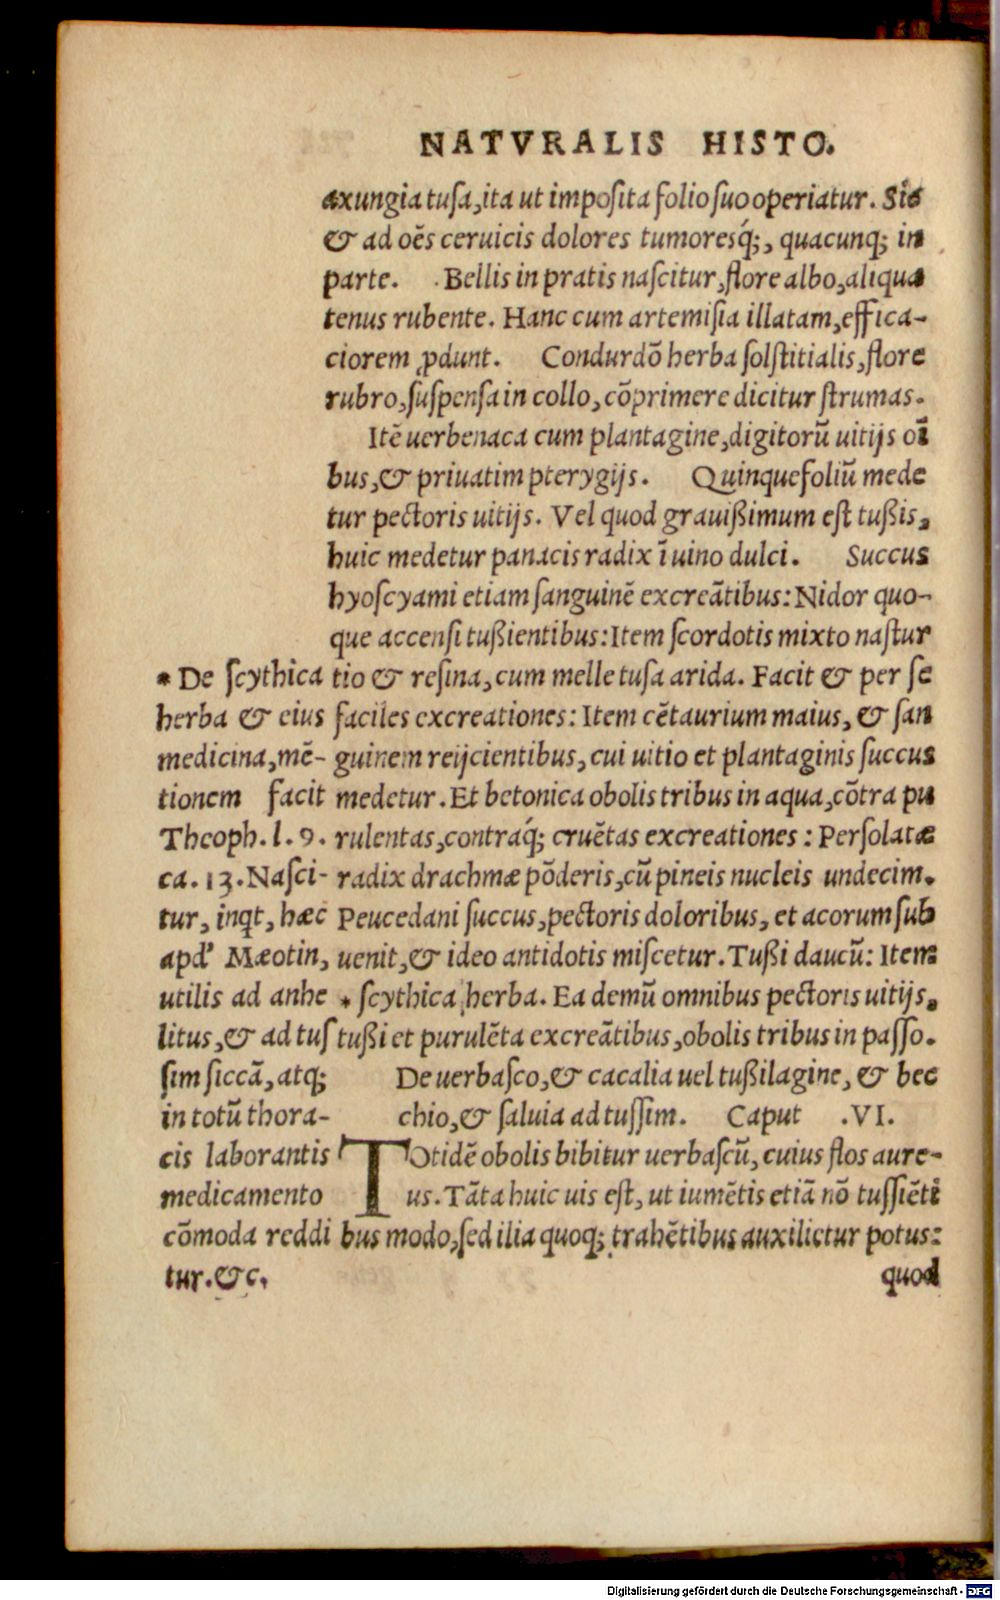 NATVRALIS HISTO.
axungia tusa, ita ut imposita folio suo operiatur. Sic
& ad oēs ceruicis dolores tumoresq́;, quacunq; in
parte. Bellis in pratis nascitur, flore albo, aliqua
tenus rubente. Hanc cum artemisia illatam, effica-
ciorem ꝓdunt. Condurdō herba solstitialis, flore
rubro, suspensa in collo, cōprimere dicitur strumas.
Itē uerbenaca cum plantagine, digitorū uitijs oī
bus, & priuatim pterygijs. Quinquefoliū mede
tur pectoris uitijs. Vel quod grauißimum est tußis,
huic medetur panacis radix ī uino dulci. Succus
hyoscyami etiam sanguinē excreātibus: Nidor quo-
que accensi tußientibus: Item scordotis mixto nastur
tio & resina, cum melle tusa arida. Facit & per se
faciles excreationes: Item cētaurium maius, & san
guinem reijcientibus, cui uitio et plantaginis succus
medetur. Et betonica obolis tribus in aqua, cōtra pu
rulentas, contraq́; cruētas excreationes: Persolatæ
radix drachmæ pōderis, cū pineis nucleis undecim.
Peucedani succus, pectoris doloribus, et acorum sub
uenit, & ideo antidotis miscetur. Tußi daucū: Item
* scythica herba. Ea demū omnibus pectoris uitijs,
tußi et purulēta excreātibus, obolis tribus in passo.
De uerbasco, & cacalia uel tußilagine, & bec
chio, & saluia ad tussim. Caput .VI.
TOtidē obolis bibitur uerbascū, cuius flos aure-
us. Tāta huic uis est, ut iumētis etiā nō tussiēti
bus modo, sed ilia quoq; trahētibus auxilietur potus:
quod
* De scythica
herba & eius
medicina, mē-
tionem facit
Theoph. l. 9.
ca. 13. Nasci-
tur, inqt, hæc
apd' Mæotin,
utilis ad anhe
litus, & ad tus
sim siccā, atq;
in totū thora-
cis laborantis
medicamento
cōmoda reddi
tur. &c.
Digitalisierung gefördert durch die Deutsche Forschungsgemeinschaft - DFG